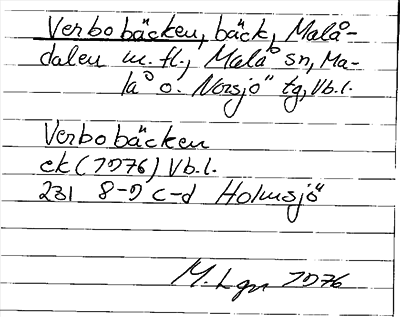 Verbobäcken, bäck, Malå-
dalen m. fl., Malå sn, Ma-
lå o. Norsjö tg, Vb.l.
Verbobäcken
ek (1976) Vb.l.
231 8-9 c-d Holmsjö
M. Lgn 1976